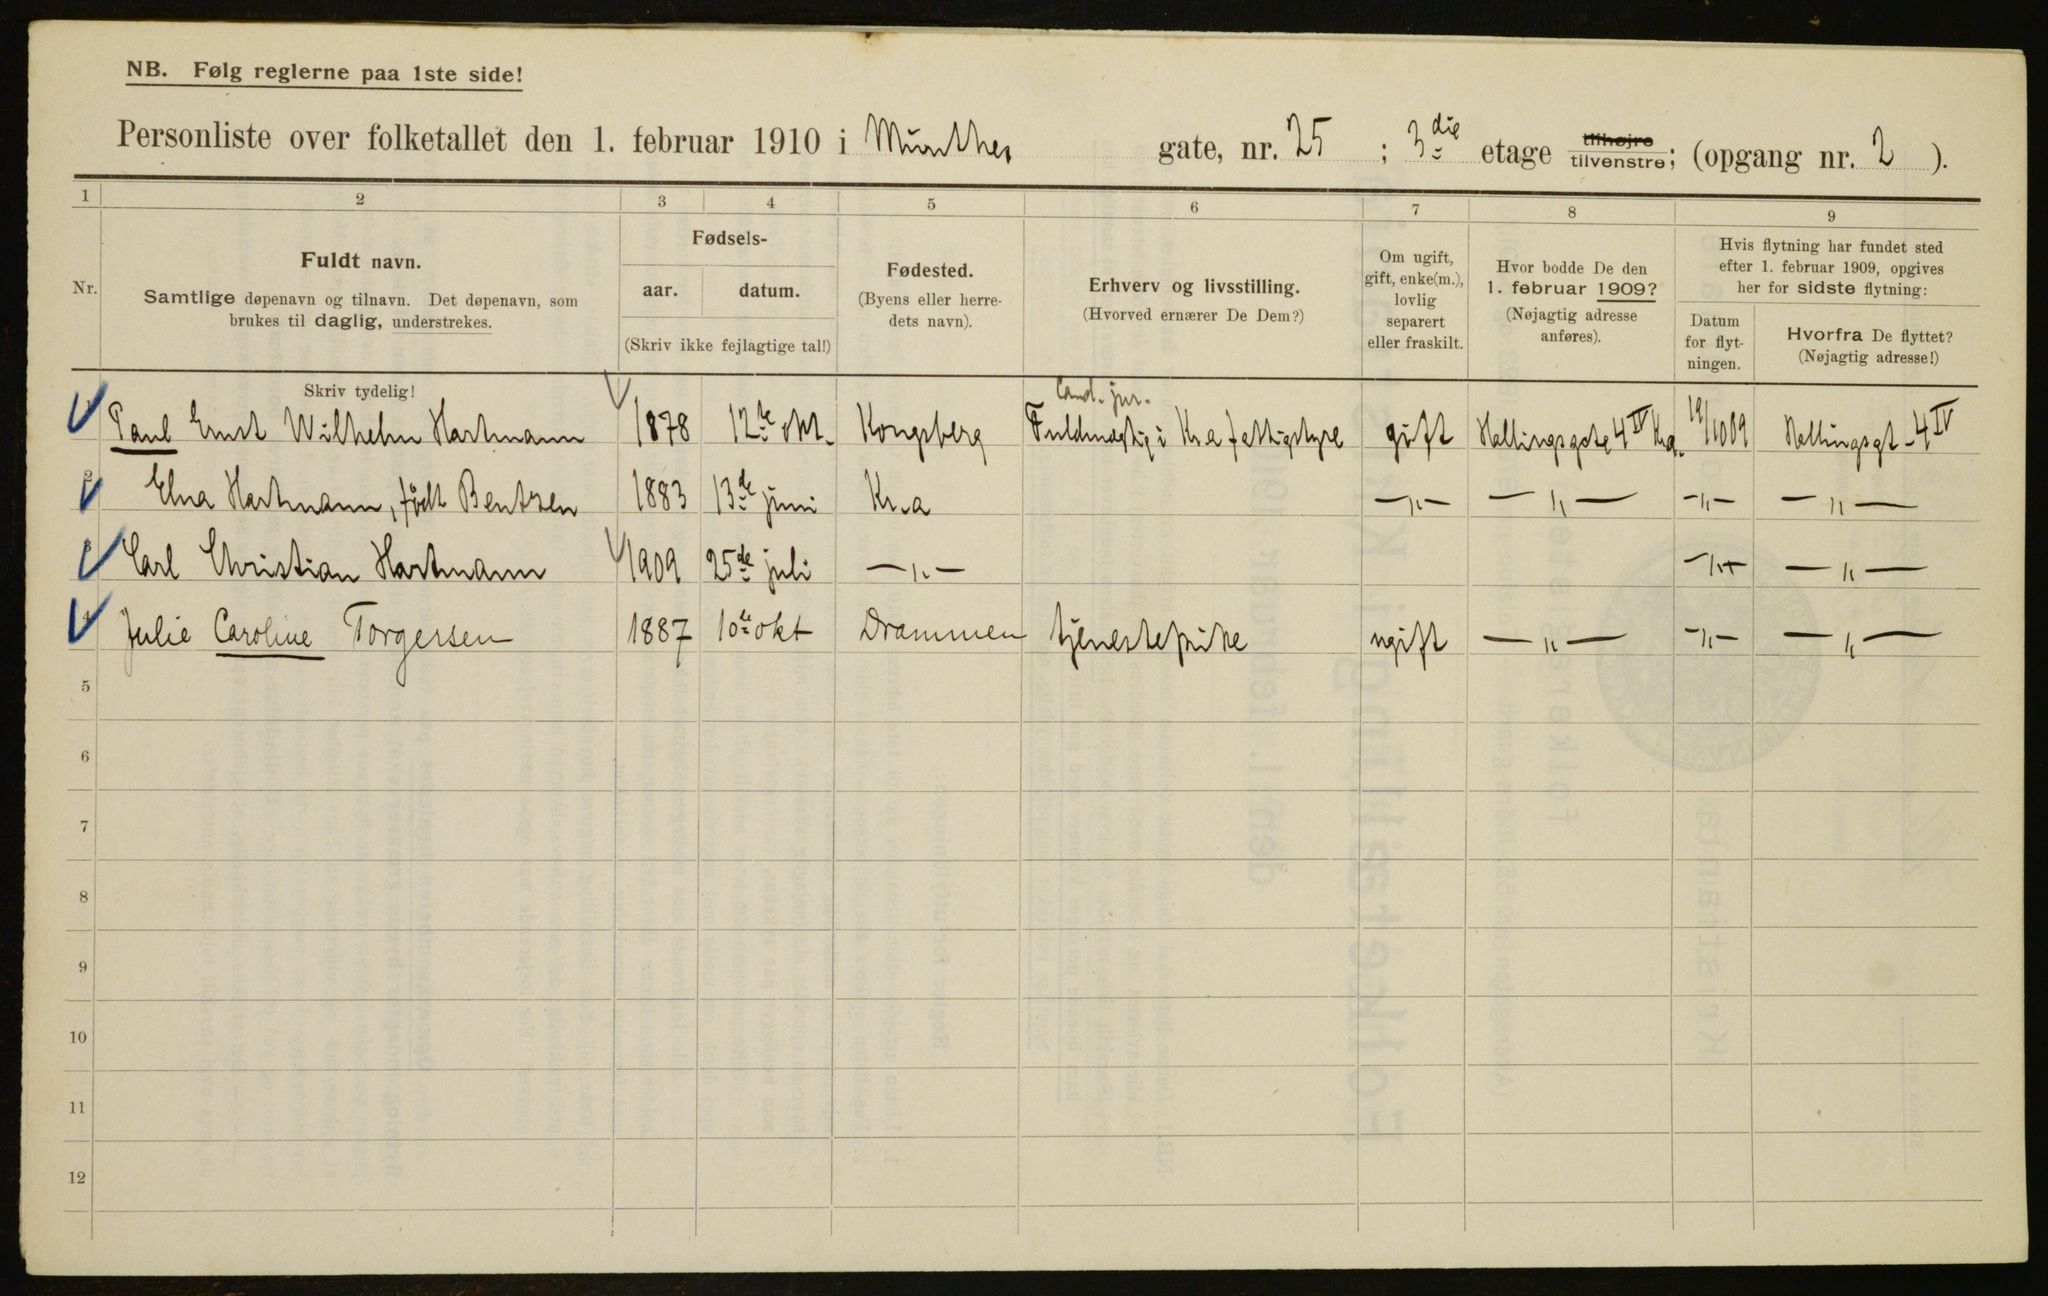 NB. Følg reglerne paa 1ste side!
Personliste over folketallet den 1. februar 1910 i Munthes gate, nr. 25 ; 3die etage tilhøjre tilvenstre; (opgang nr. 2 ).
1 2 3 4 5 6 7 8 9
Nr.
Fuldt navn.
Samtlige døpenavn og tilnavn. Det døpenavn, som
brukes til daglig, understrekes.
Fødsels-
aar. datum.
(Skriv ikke fejlagtige tal!)
Fødested.
(Byens eller herre-
dets navn).
Erhverv og livsstilling.
(Hvorved ernærer De Dem?)
Om ugift,
gift, enke(m.),
lovlig
separert
eller fraskilt.
Hvor bodde De den
1. februar 1909?
(Nøjagtig adresse
anføres).
Hvis flytning har fundet sted
efter 1. februar 1909, opgives
her for sidste flytning:
Datum
for flyt-
ningen.
Hvorfra De flyttet?
(Nøjagtig adresse!)
Skriv tydelig!
Cand. jur.
1 Paul Ernst Wilhelm Hartmann 1878 12te okt. Kongsberg Fuldmægtig i Kr.a fattigstyre gift Hallingsgate 4 IV Kra. 19/10 09 Hallingsgt. 4 IV
2 Elna Hartmann, født Bentzen 1883 13de juni Kr.a —„— —„— —„— —„—
3 Carl Christian Hartmann 1909 25de juli —„— —„— —„—
4 Julie Caroline Torgersen 1887 10de okt Drammen tjenestepike ugift —„— —„— —„—
5
6
7
8
9
10
11
12